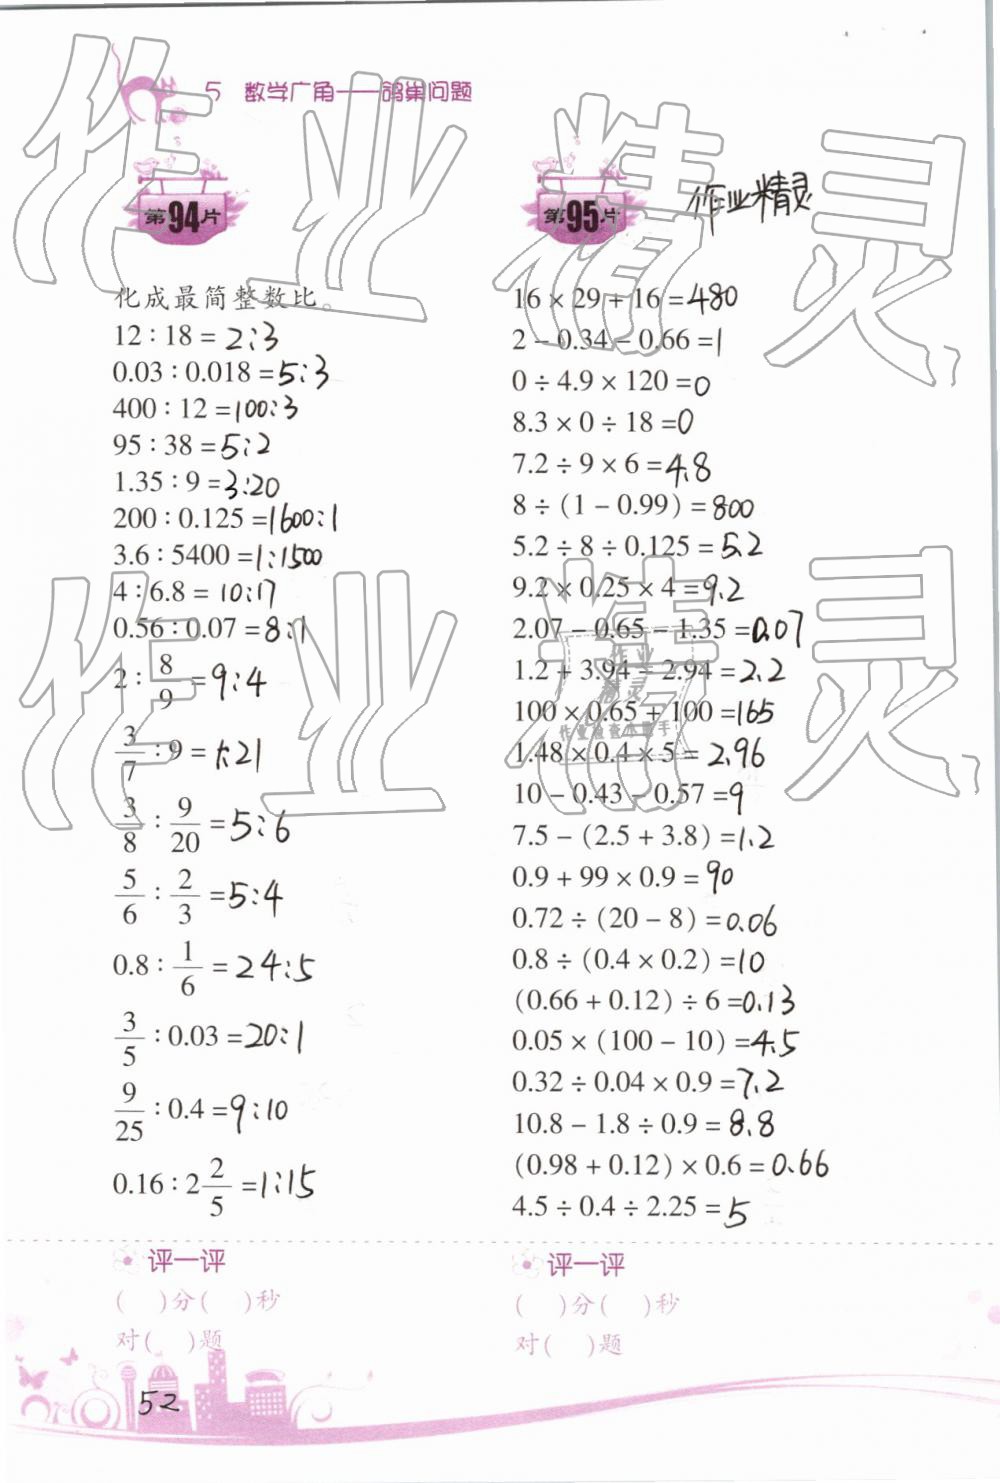 5 数学广角——鸽巢问题
第94片
化成最简整数比。
12 : 18 = 2:3
0.03 : 0.018 = 5:3
400 : 12 = 100:3
95 : 38 = 5:2
1.35 : 9 = 3:20
200 : 0.125 = 1600:1
3.6 : 5400 = 1:1500
4 : 6.8 = 10:17
0.56 : 0.07 = 8:1
2 : 8/9 = 9:4
3/7 : 9 = 1:21
3/8 : 9/20 = 5:6
5/6 : 2/3 = 5:4
0.8 : 1/6 = 24:5
3/5 : 0.03 = 20:1
9/25 : 0.4 = 9:10
0.16 : 2 2/5 = 1:15
评一评
( )分( )秒
对( )题
52
第95片
作业精灵
16 × 29 + 16 = 480
2 - 0.34 - 0.66 = 1
0 ÷ 4.9 × 120 = 0
8.3 × 0 ÷ 18 = 0
7.2 ÷ 9 × 6 = 4.8
8 ÷ (1 - 0.99) = 800
5.2 ÷ 8 ÷ 0.125 = 5.2
9.2 × 0.25 × 4 = 9.2
2.07 - 0.65 - 1.35 = 0.07
1.2 + 3.94 - 2.94 = 2.2
100 × 0.65 + 100 = 165
1.48 × 0.4 × 5 = 2.96
10 - 0.43 - 0.57 = 9
7.5 - (2.5 + 3.8) = 1.2
0.9 + 99 × 0.9 = 90
0.72 ÷ (20 - 8) = 0.06
0.8 ÷ (0.4 × 0.2) = 10
(0.66 + 0.12) ÷ 6 = 0.13
0.05 × (100 - 10) = 4.5
0.32 ÷ 0.04 × 0.9 = 7.2
10.8 - 1.8 ÷ 0.9 = 8.8
(0.98 + 0.12) × 0.6 = 0.66
4.5 ÷ 0.4 ÷ 2.25 = 5
评一评
( )分( )秒
对( )题
作业精灵
作业精灵
作业
精灵
作业检查小帮手